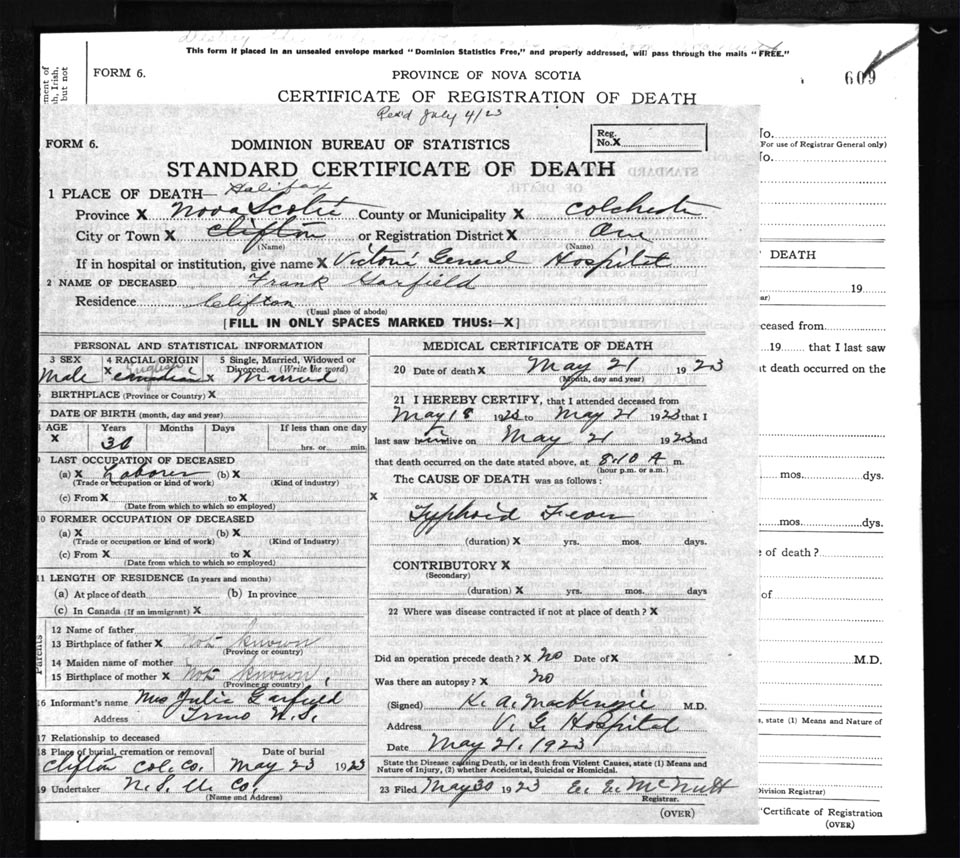 This form if placed in an unsealed envelope marked "Dominion Statistics Free," and properly addressed, will pass through the mails "FREE."
FORM 6.
PROVINCE OF NOVA SCOTIA
609
CERTIFICATE OF REGISTRATION OF DEATH
Rec'd July 4/23
FORM 6.
DOMINION BUREAU OF STATISTICS
Reg. No. X
STANDARD CERTIFICATE OF DEATH
1 PLACE OF DEATH— Halifax
Province X Nova Scotia County or Municipality X Colchester
City or Town X Clifton or Registration District X
(Name) (Name)
If in hospital or institution, give name X Victoria General Hospital
2 NAME OF DECEASED Frank Garfield
Residence Clifton
(Usual place of abode)
[FILL IN ONLY SPACES MARKED THUS:—X]
PERSONAL AND STATISTICAL INFORMATION
3 SEX 4 RACIAL ORIGIN 5 Single, Married, Widowed or Divorced. (Write the word)
Male X English Canadian X Married
BIRTHPLACE (Province or Country) X
DATE OF BIRTH (month, day and year)
AGE Years Months Days If less than one day
X 30 hrs. or min.
LAST OCCUPATION OF DECEASED
(a) X Laborer (b) X
(Trade or occupation or kind of work) (Kind of Industry)
(c) From X to X
(Date from which to which so employed)
10 FORMER OCCUPATION OF DECEASED
(a) X (b) X
(Trade or occupation or kind of work) (Kind of Industry)
(c) From X to X
(Date from which to which so employed)
11 LENGTH OF RESIDENCE (In years and months)
(a) At place of death (b) In province
(c) In Canada (If an immigrant) X
Parents
12 Name of father
13 Birthplace of father X not known
(Province or country)
14 Maiden name of mother
15 Birthplace of mother X not known
(Province or country)
16 Informant's name Mrs Julia Garfield
Address Truro N.S.
17 Relationship to deceased
18 Place of burial, cremation or removal Date of burial
Clifton Col. Co. May 23 1923
19 Undertaker N. S. U. Co.
(Name and Address)
MEDICAL CERTIFICATE OF DEATH
20 Date of death X May 21 1923
(Month, day and year)
21 I HEREBY CERTIFY, that I attended deceased from
May 18 1923 to May 21 1923 that I
last saw him alive on May 21 1923 and
that death occurred on the date stated above, at 8.10 A m.
(hour p.m. or a.m.)
The CAUSE OF DEATH was as follows:
X
Typhoid Fever
(duration) X yrs. mos. days.
CONTRIBUTORY X
(Secondary)
(duration) X yrs. mos. days
22 Where was disease contracted if not at place of death? X
Did an operation precede death? X No Date of X
Was there an autopsy? X No
(Signed) K. A. MacKenzie M.D.
Address V. G. Hospital
Date May 21, 1923
State the Disease causing Death, or in death from Violent Causes, state (1) Means and
Nature of Injury, (2) whether Accidental, Suicidal or Homicidal.
23 Filed May 30 1923 E. E. McNutt
Registrar.
(OVER)
No.
(For use of Registrar General only)
No.
DEATH
19
ceased from
19 that I last saw
at death occurred on the
mos. dys.
mos. dys.
e of death?
of
M.D.
s, state (1) Means and Nature of
Division Registrar)
"Certificate of Registration
(OVER)